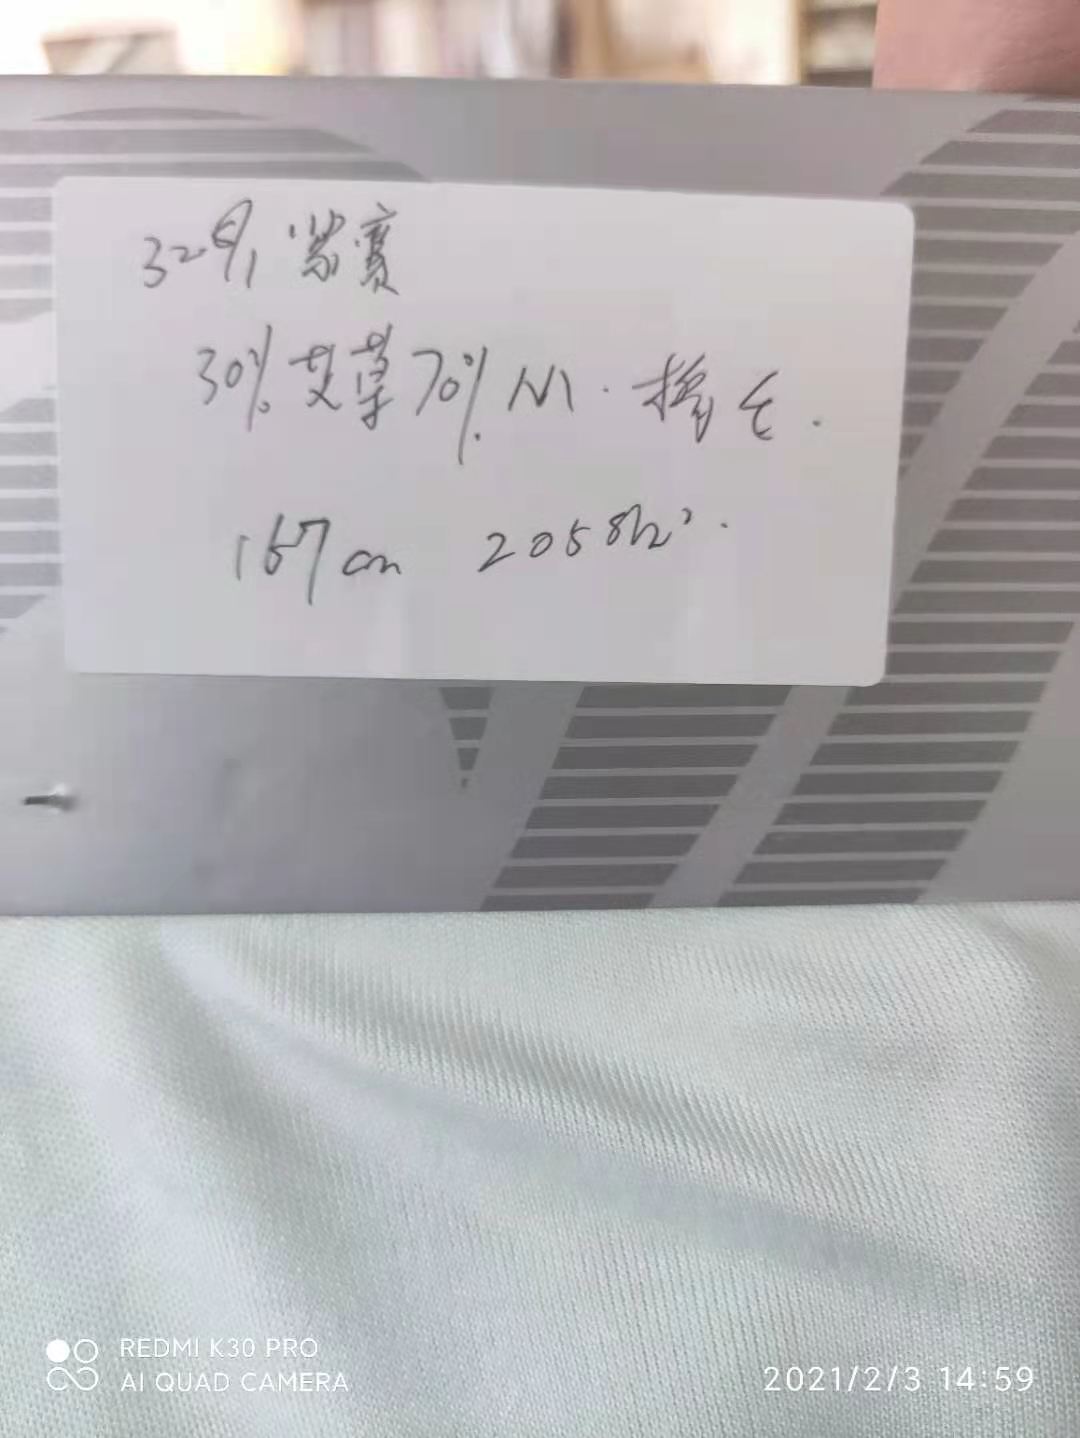 32S/1 紧赛
30% 艾草 70% M.
167cm 205g/m².
REDMI K30 PRO
AI QUAD CAMERA
2021/2/3 14:59